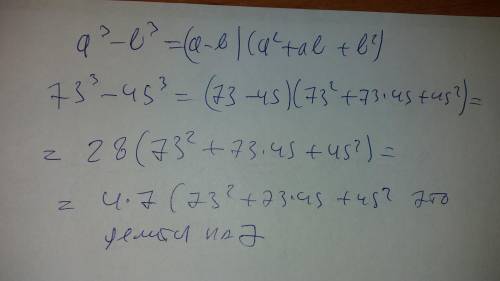 a³-b³=(a-b)(a²+ab+b²)
73³-45³=(73-45)(73²+73·45+45²)=
= 28(73²+73·45+45²)=
= 4·7(73²+73·45+45² это
делится на 7